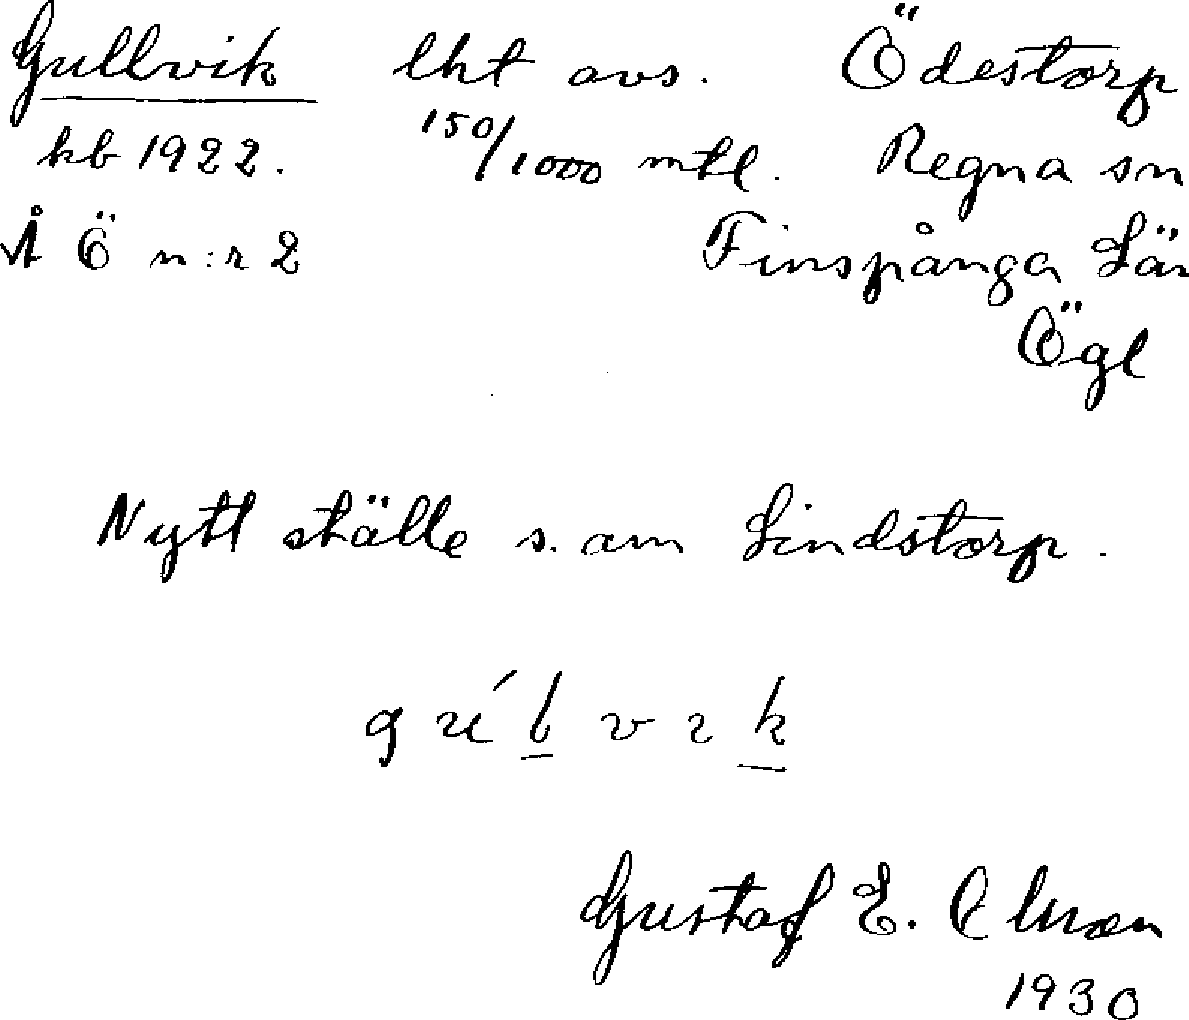 Gullvik lht avs. Ödestorp
kb 1922. 150/1000 mtl. Regna sn
Å Ö n:r 2 Finspånga Län
Ögl
Nytt ställe s. om Lindstorp.
gúlvik
Gustaf E.
1930